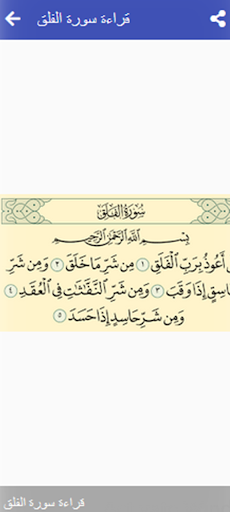 قراءة سورة الفلق
سُورَةُ الفَلَقِ
بِسْمِ اللَّهِ الرَّحْمَٰنِ الرَّحِيمِ
أَعُوذُ بِرَبِّ الْفَلَقِ ١ مِن شَرِّ مَا خَلَقَ ٢ وَمِن شَرِّ
إِذَا وَقَبَ ٣ وَمِن شَرِّ النَّفَّاثَاتِ فِي الْعُقَدِ ٤
وَمِن شَرِّ حَاسِدٍ إِذَا حَسَدَ ٥
قراءة سورة الفلق